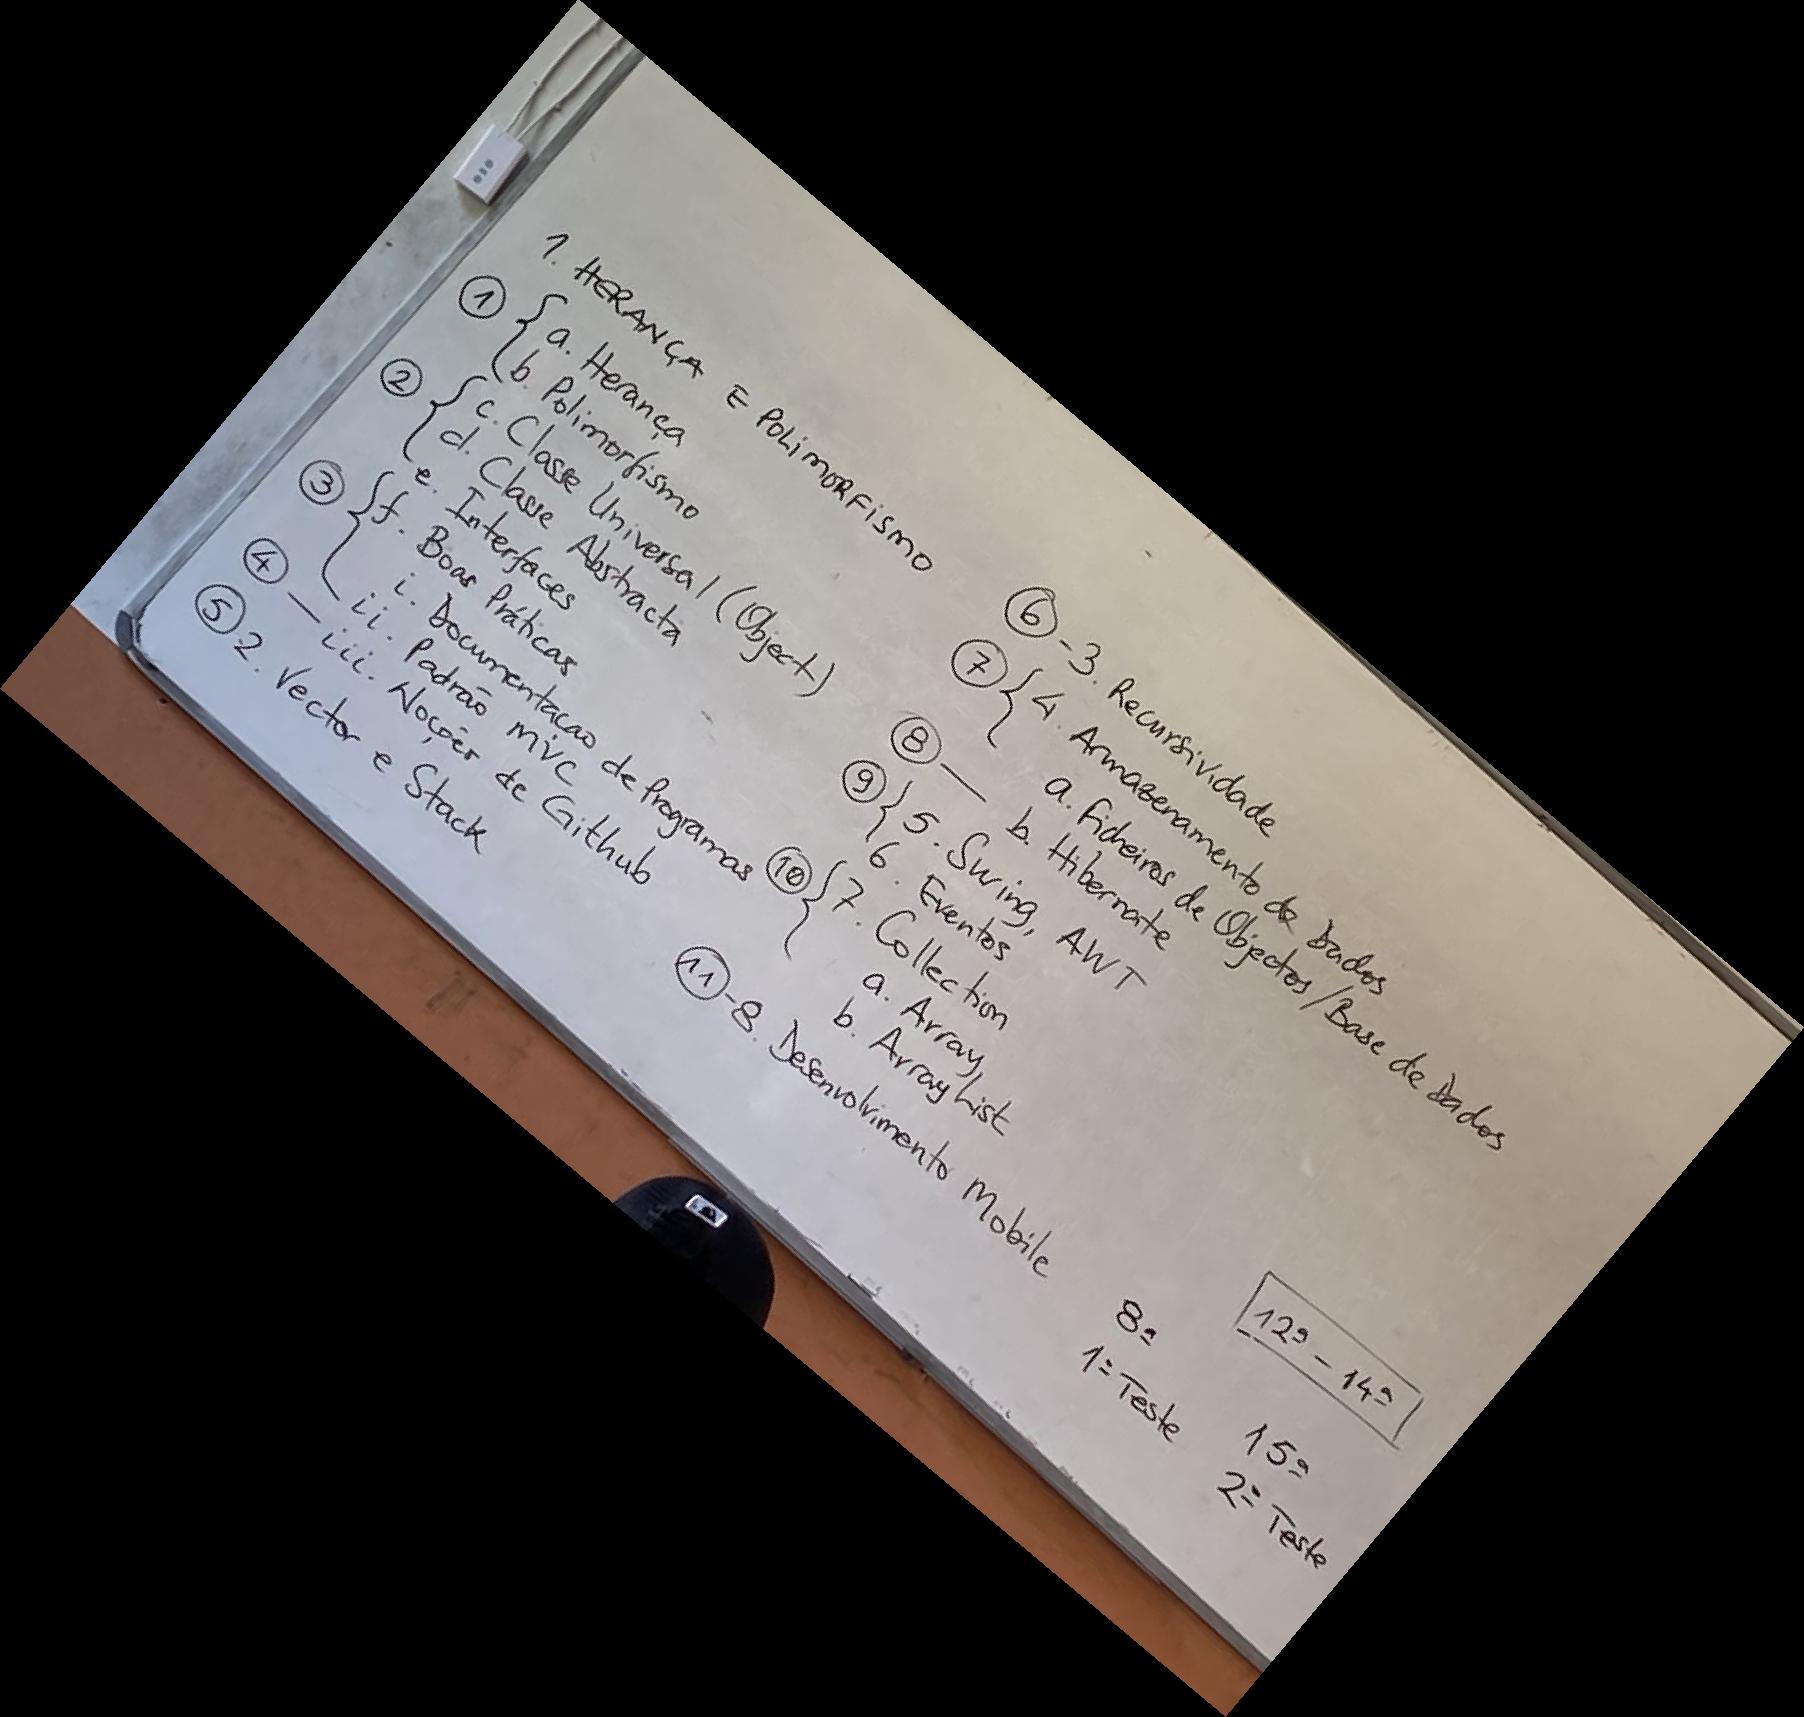 1. HERANÇA E POLIMORFISMO
① a. Herança
b. Polimorfismo
② c. Classe Universal (Object)
d. Classe Abstracta
e. Interfaces
③ f. Boas Práticas
i. Documentação de Programas
ii. Padrão MVC
④ — iii. Noções de Github
⑤ 2. Vector e Stack
⑥ - 3. Recursividade
⑦ 4. Armazenamento de Dados
a. Ficheiros de Objectos/Base de Dados
⑧ — b. Hibernate
⑨ 5. Swing, AWT
6. Eventos
⑩ 7. Collection
a. Array
b. Array List
⑪ - 8. Desenvolvimento Mobile
8ª
1º Teste
12ª - 14ª
15ª
2º Teste